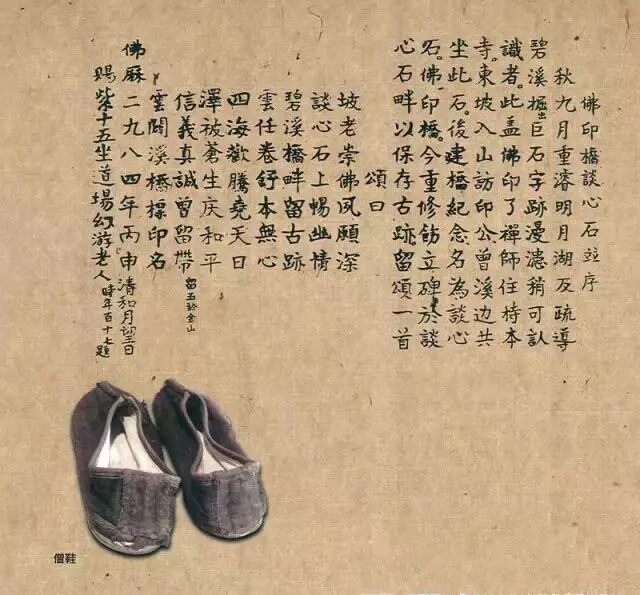 佛印橋談心石竝序
秋九月重濬明月湖及疏導
碧溪掘出巨石字跡漫漶稍可認
識者。此盖佛印了禪師住持本
寺。東坡入山訪印公曾溪边共
坐此石。後建橋紀念名為談心
石。佛印橋。今重修飭立碑於談
心石畔以保存古跡留頌一首
頌曰
坡老崇佛夙願深
談心石上暢幽情
碧溪橋畔留古跡
雲任卷舒本無心
四海歡騰堯天日
澤被蒼生庆和平
信義真誠曾留帶 留玉於金山
雲閞溪橋標印名
佛厤二九八四年丙申清和月望日
賜紫十五坐道場幻游老人 時年百十七題
僧鞋